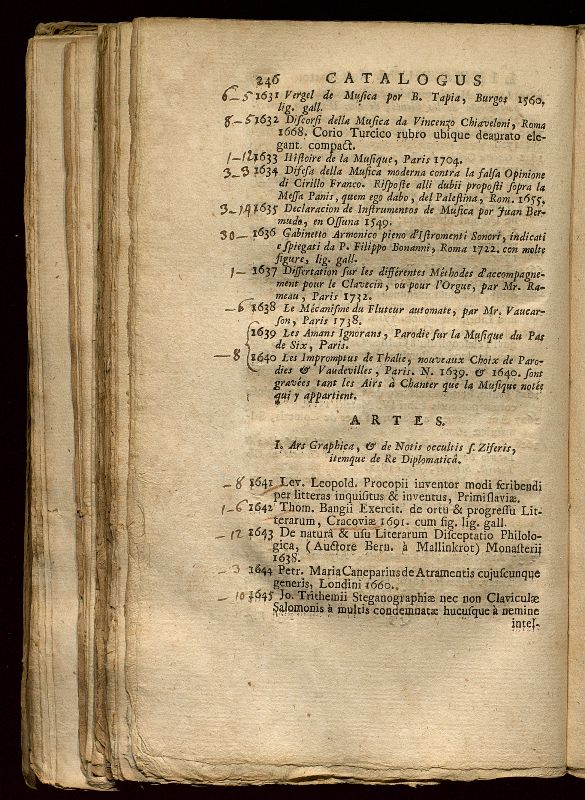 246 CATALOGUS
6-5 1631 Vergel de Musica por B. Tapia, Burgos 1560.
lig. gall.
8-5 1632 Discorsi della Musica da Vincenzo Chiaveloni, Roma
1668. Corio Turcico rubro ubique deaurato ele-
gant. compact.
1-12 1633 Histoire de la Musique, Paris 1704.
3-3 1634 Difesa della Musica moderna contra la falsa Opinione
di Cirillo Franco. Risposte alli dubii proposti sopra la
Messa Panis, quem ego dabo, del Palestina, Rom. 1655.
3-14 1635 Declaracion de Instrumentos de Musica por Juan Ber-
mudo, en Ossuna 1549.
30- 1636 Gabinetto Armonico pieno d'Istromenti Sonori, indicati
e spiegati da P. Filippo Bonanni, Roma 1722. con molte
figure, lig. gall.
1- 1637 Dissertation sur les différentes Méthodes d'accompagne-
ment pour le Clavecin, ou pour l'Orgue, par Mr. Ra-
meau, Paris 1732.
-6 1638 Le Mécanisme du Fluteur automate, par Mr. Vaucan-
son, Paris 1738.
1639 Les Amans Ignorans, Parodie sur la Musique du Pas
de Six, Paris.
-8 1640 Les Impromptus de Thalie, nouveaux Choix de Paro-
dies & Vaudevilles, Paris. N. 1639. & 1640. sont
gravées tant les Airs à Chanter que la Musique notée
qui y appartient.
ARTES.
I. Ars Graphica, & de Notis occultis s. Ziferis,
itemque de Re Diplomaticâ.
-8 1641 Lev. Leopold. Procopii inventor modi scribendi
per litteras inquisitus & inventus, Primislaviæ.
1-6 1642 Thom. Bangii Exercit. de ortu & progressu Lit-
terarum, Cracoviæ 1691. cum fig. lig. gall.
-12 1643 De naturâ & usu Literarum Disceptatio Philolo-
gica, (Auctore Bern. à Mallinkrot) Monasterii
1638.
-3 1644 Petr. Maria Caneparius de Atramentis cujuscunque
generis, Londini 1660.
-10 1645 Jo. Trithemii Steganographiæ nec non Claviculæ
Salomonis à multis condemnatæ hucusque à nemine
intel-